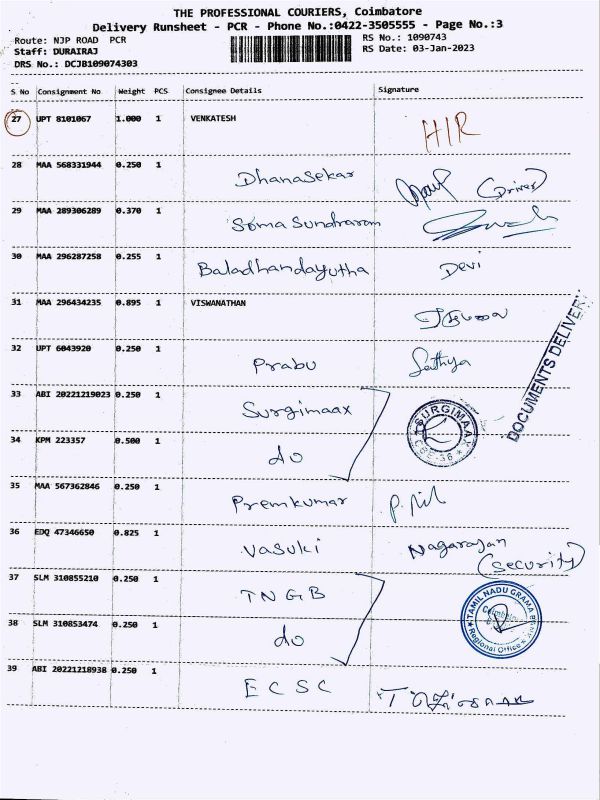 THE PROFESSIONAL COURIERS, Coimbatore
Delivery Runsheet - PCR - Phone No.:0422-3505555 - Page No.:3
Route: NJP ROAD PCR
RS No.: 1090743
Staff: DURAIRAJ
RS Date: 03-Jan-2023
DRS No.: DCJB109074303
S No Consignment No Weight PCS Consignee Details Signature
27 UPT 8101067 1.000 1 VENKATESH
28 MAA 568331944 0.250 1 Dhanasekar (Driver)
29 MAA 289306289 0.370 1 Soma Sundraram
30 MAA 296287258 0.255 1 Baladhandayutha Devi
31 MAA 296434235 0.895 1 VISWANATHAN
32 UPT 6043920 0.250 1 Prabu Sathya
33 ABI 20221219023 0.250 1 Surgimaax
SURGIMAAX
CBE-36
DOCUMENTS DELIVERY
34 KPM 223357 0.500 1 do
35 MAA 567362846 0.250 1 Premkumar
36 EDQ 47346650 0.825 1 Vasuki Nagarajan
(Security)
37 SLM 310855210 0.250 1 TNGB
TAMIL NADU GRAMA
Regional Office
38 SLM 310853474 0.250 1 do
39 ABI 20221218938 0.250 1 ECSC